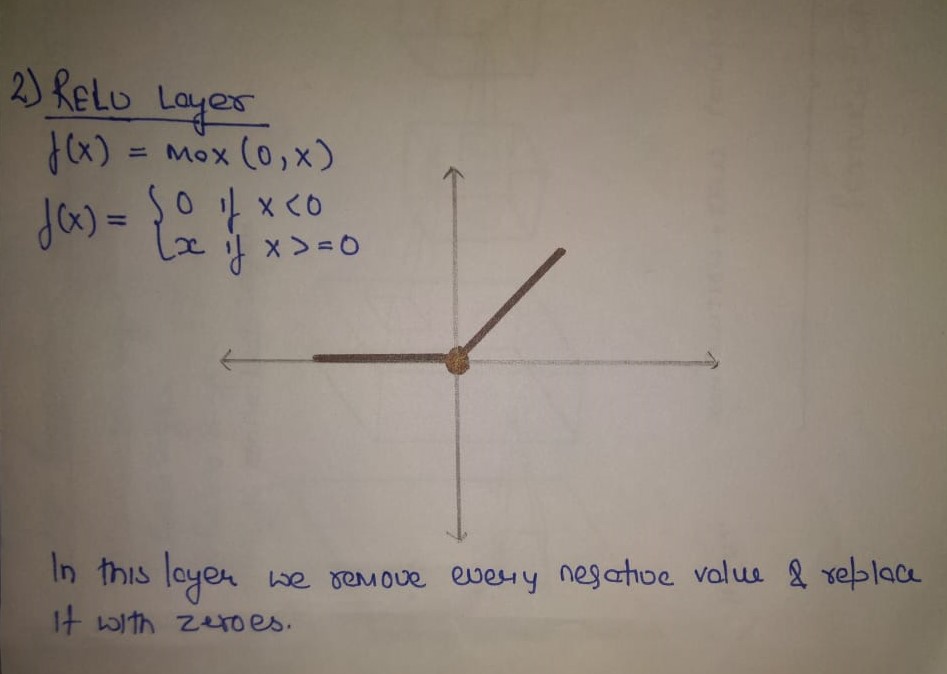 2) RELU Layer
f(x) = max (0, x)
f(x) = { 0 if x < 0
x if x >= 0
In this layer we remove every negative value & replace
it with zeroes.